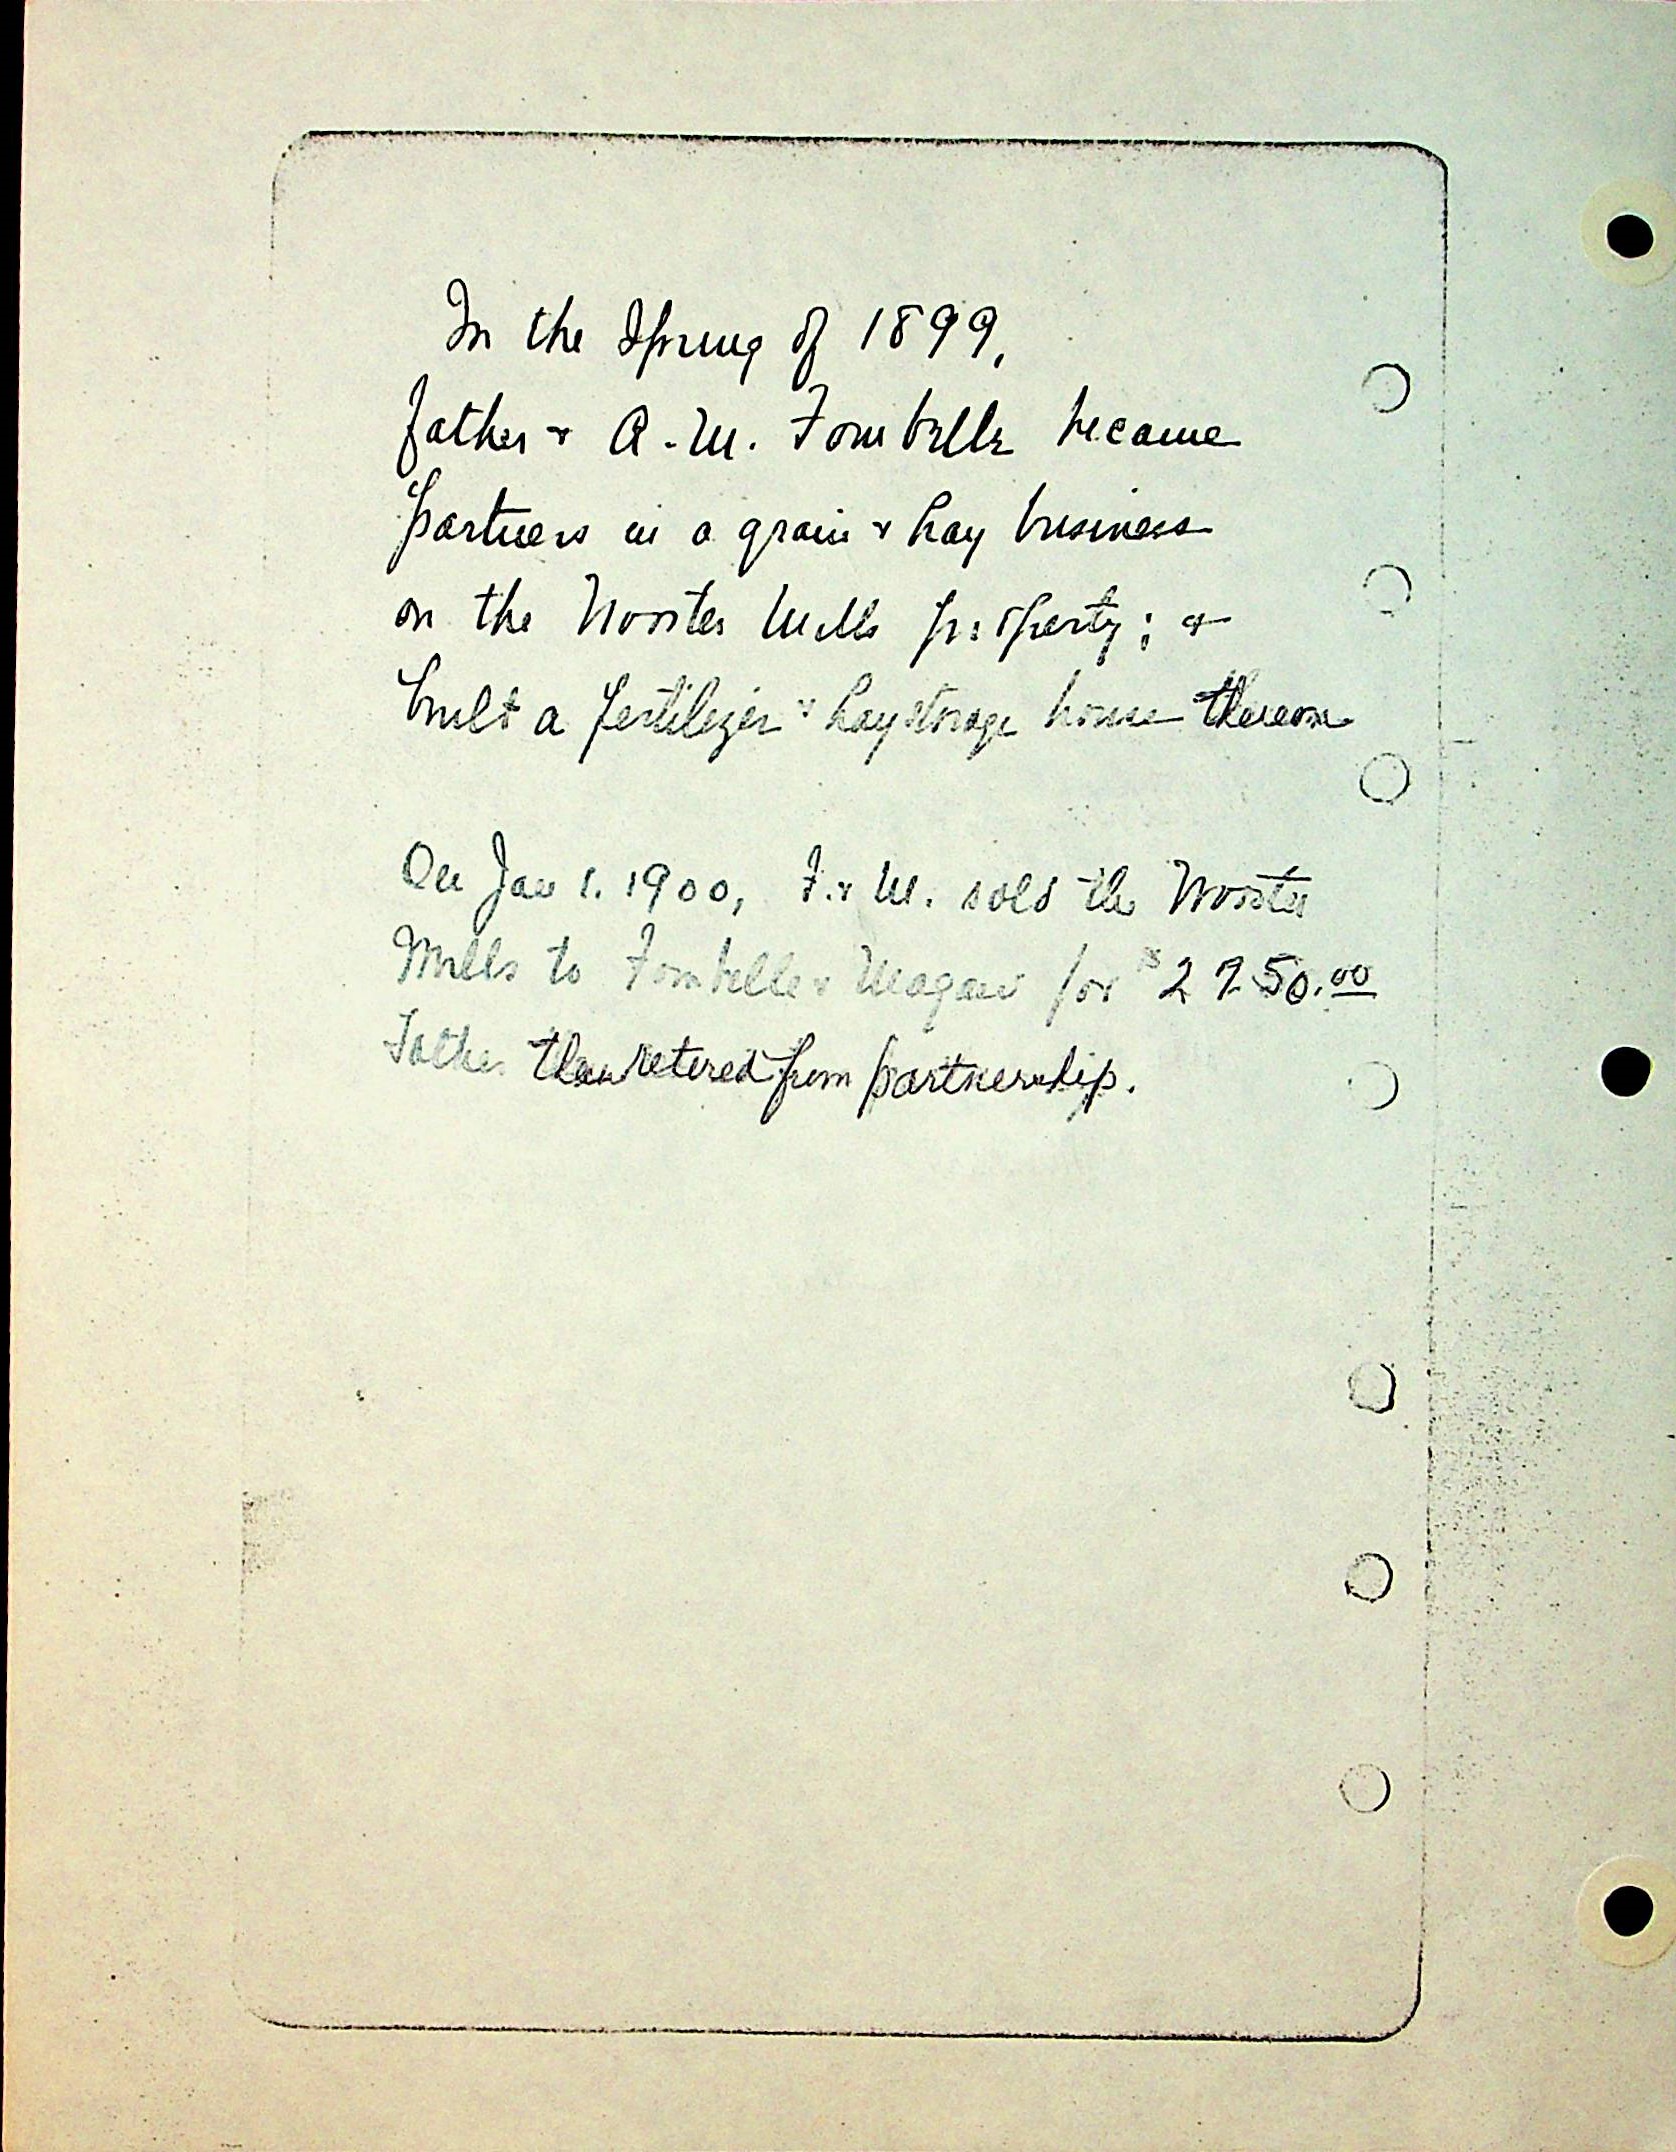 In the Spring of 1899,
father & A. M. Fombelle became
partners in a grain & hay business
on the Wooster Mills property; &
built a fertilizer & hay storage house thereon
On Jan 1. 1900, F. & M. sold the Wooster
Mills to Fombelle & Magaw for $2250.00
Father then retired from partnership.